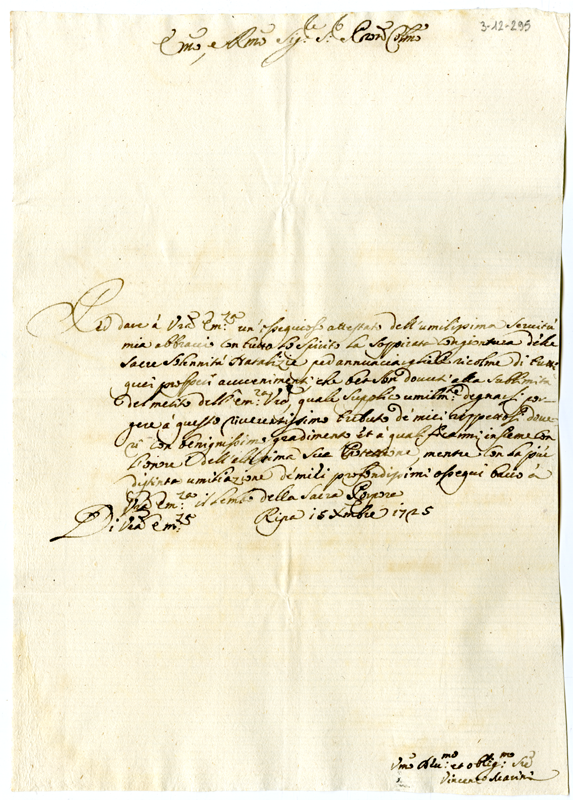 3-12-295
Emo, e Rmo Sig.re Sr. Pron Colmo
Per dare à Vra Em.za un'ossequioso attestato dell'umilissima servitù
mia abbraccio con tutto lo spirito la sospirata congiontura delle
Sacre Solennità Natalizie ad annunciargliele ricolme di tutti
quei prosperi avvenimenti, che ben son dovuti alla sublimità
del merito dell'Em.za Vra, quale supplico umilm.te degnarsi por-
gere à questo riverentissimo tributo de miei rispettosi dove-
ri con benignissimo gradimento et à qualificarmi insieme con
l'onore dell'altissima Sua Protezione, mentre con la più
distinta umiliazione de miei profondissimi ossequi bacio à
Vra Em.za il lembo della Sacra Porpora
Di Vra Em.za Ripa 15 Xmbre 1725
Vmo Dlu.mo et oblig.mo Sre
Vincenzo Marini